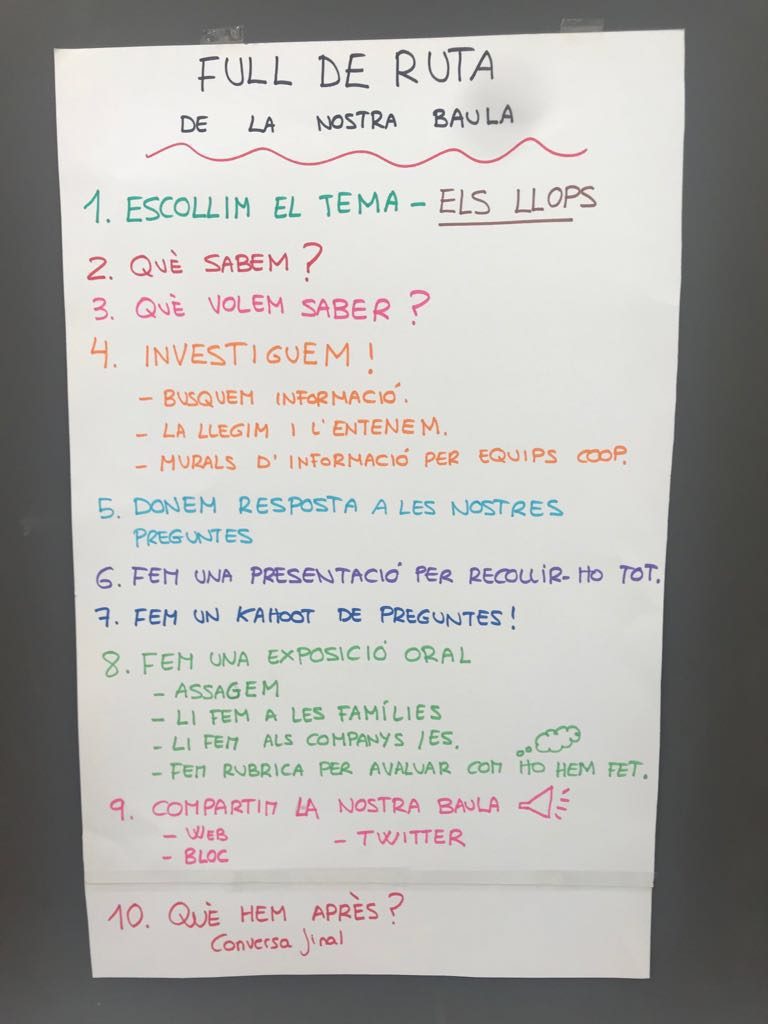 FULL DE RUTA
DE LA NOSTRA BAULA
1. ESCOLLIM EL TEMA - ELS LLOPS
2. QUÈ SABEM?
3. QUÈ VOLEM SABER?
4. INVESTIGUEM!
- BUSQUEM INFORMACIÓ.
- LA LLEGIM I L'ENTENEM.
- MURALS D'INFORMACIÓ PER EQUIPS COOP.
5. DONEM RESPOSTA A LES NOSTRES
PREGUNTES
6. FEM UNA PRESENTACIÓ PER RECOLLIR-HO TOT.
7. FEM UN KAHOOT DE PREGUNTES!
8. FEM UNA EXPOSICIÓ ORAL
- ASSAGEM
- LI FEM A LES FAMÍLIES
- LI FEM ALS COMPANYS /ES.
- FEM RUBRICA PER AVALUAR COM HO HEM FET.
9. COMPARTIM LA NOSTRA BAULA
- WEB - TWITTER
- BLOC
10. QUÈ HEM APRÈS?
Conversa final